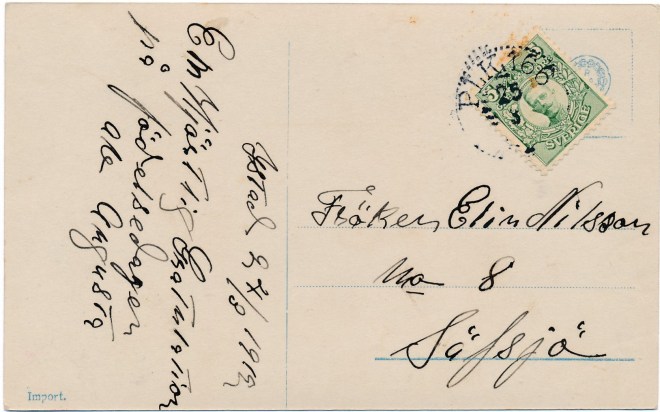 En Hjärtlig Gratulation
på födelsedagen
Augusta
Ystad 27/3 1913
PLK 166
25
3
5
SVERIGE
5
Fröken Elin Nilsson
No 8
Säfsjö
Import.